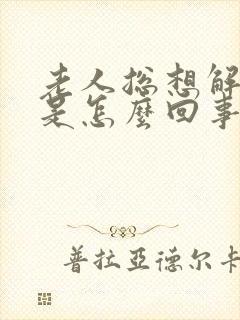 老人総想解
是怎麼回事
普拉亞德尔卡